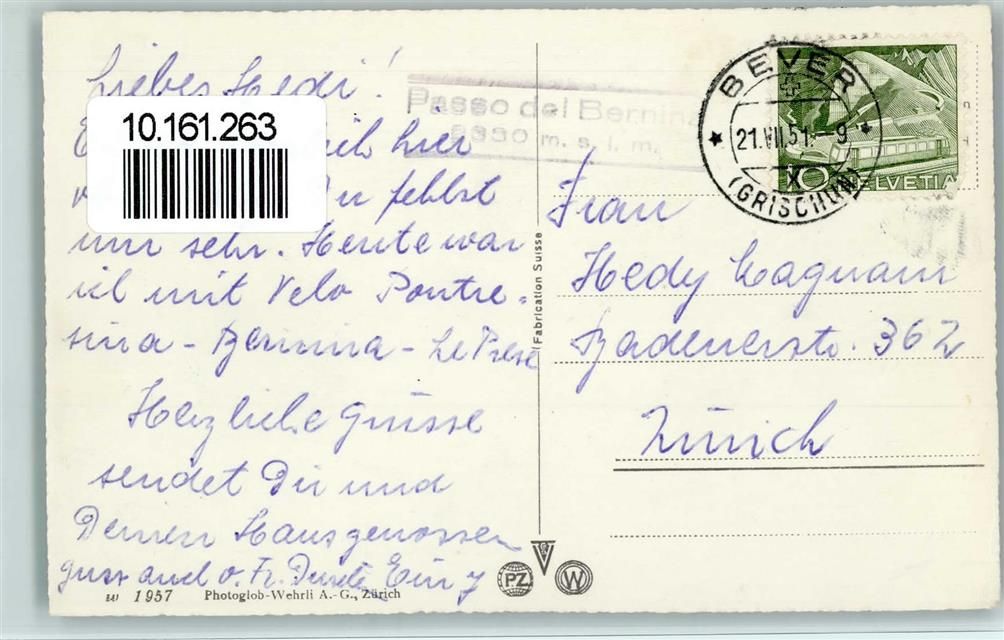 Liebes Hedi!
10.161.263
ich hier
Du fehlst
mir sehr. Heute war
ich mit Velo Pontre-
sina - Bernina - Le Prese
Herzliche Grüsse
sendet Dir und
Deinen Hausgenossen
w 1957 Photoglob-Wehrli A.-G., Zürich
Fabrication Suisse
PZ W
Passo del Bernina
m. s. l. m.
BEVER
21.VII.51.-9
X
(GRISCHUN)
10 HELVETIA
Frau
Hedy Wagnam
Badenerstr. 362
Zürich